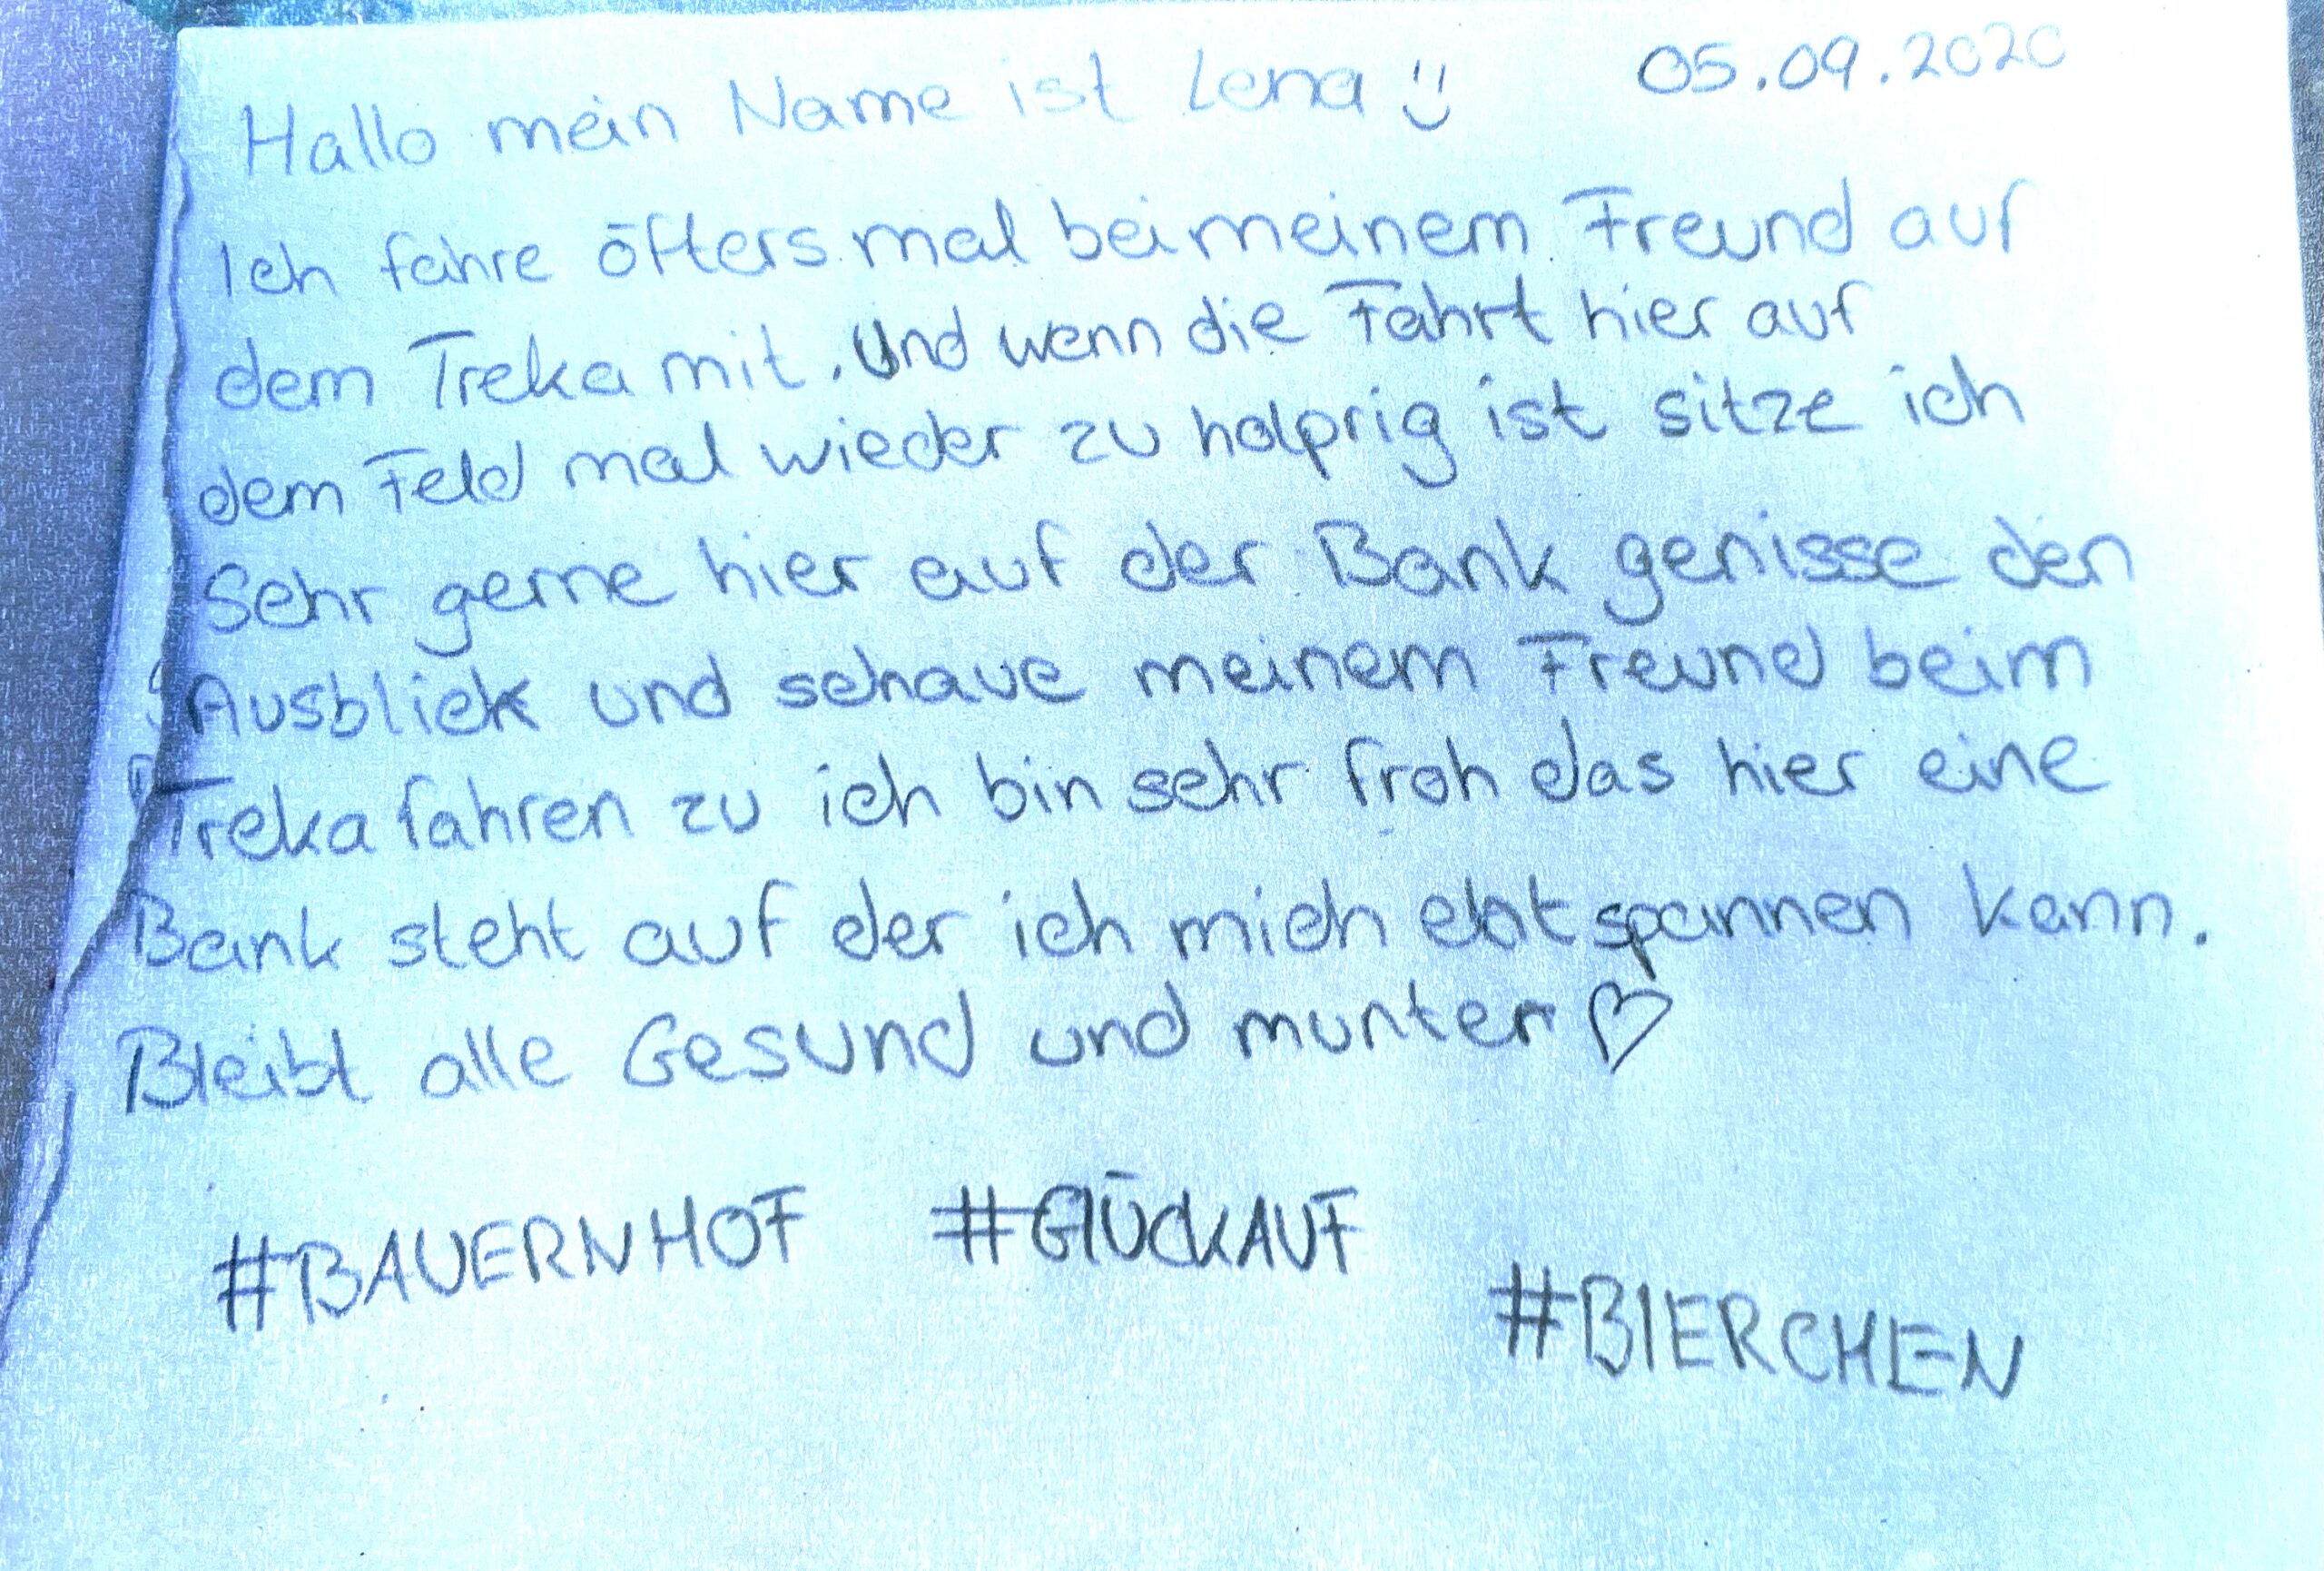 Hallo mein Name ist Lena 05.09.2020
Ich fahre öfters mal bei meinem Freund auf
dem Treka mit. Und wenn die Fahrt hier auf
dem Feld mal wieder zu holprig ist sitze ich
Sehr gerne hier auf der Bank genisse den
Ausblick und schaue meinem Freund beim
Treka fahren zu ich bin sehr froh das hier eine
Bank steht auf der ich mich entspannen kann.
Bleibt alle Gesund und munter ♡
#BAUERNHOF #GlÜCKAUF
#BIERCHEN